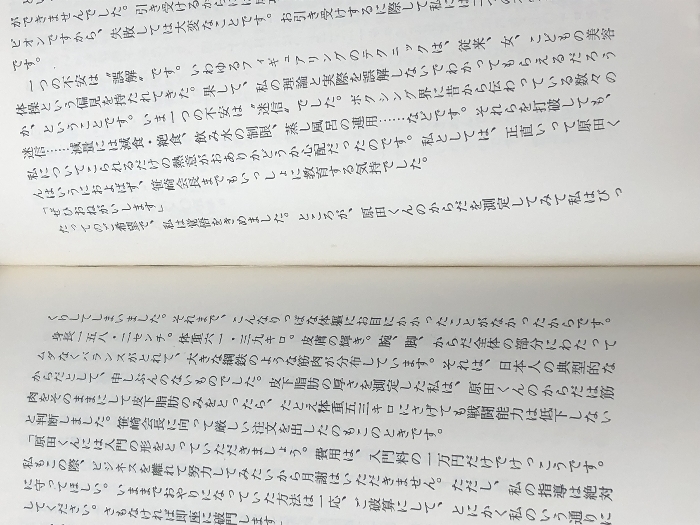 ができませんでした。引き受けるからには
ピオンですから、失敗しては大変なことです。お引き受けするに際して私には
です。
一つの不安は〝誤解〟です。いわゆるフィギュアリングのテクニックは、従来、女、こどもの美容
体操という偏見を持たれてきた。果して、私の理論と実際を誤解しないでわかってもらえるだろう
か、ということです。いま一つの不安は〝迷信〟でした。ボクシング界に昔から伝わっている数々の
迷信……減量には減食・絶食、飲み水の制限、蒸し風呂の連用……などです。それらを打破しても、
私についてこられるだけの熱意がおありかどうか心配だったのです。私としては、正直いって原田く
んはいうにおよばず、笹崎会長までもいっしょに教育する気持でした。
「ぜひおねがいします」
たってのご希望で、私は覚悟をきめました。ところが、原田くんのからだを測定してみて私はびっ
くりしてしまいました。それまで、こんなりっぱな体軀にお目にかかったことがなかったからです。
身長一五八・二センチ。体重六一・三九キロ。皮膚の輝き。腕、脚、からだ全体の部分にわたって
ムダなくバランスがとれて、大きな鋼鉄のような筋肉が分布しています。それは、日本人の典型的な
からだとして、申しぶんのないものでした。皮下脂肪の厚さを測定した私は、原田くんのからだは筋
肉をそのままにして皮下脂肪のみをとったら、たとえ体重五三キロにさげても戦闘能力は低下しない
と判断しました。笹崎会長に向って厳しい注文を出したのもこのときです。
「原田くんには入門の形をとっていただきましょう。費用は、入門料の一万円だけでけっこうです。
私もこの際、ビジネスを離れて努力してみたいから月謝はいただきません。ただし、私の指導は絶対
に守ってほしい。いままでおやりになっていた方法は一応、ご破算にして、とにかく私のいう通りに
してください。さもなければ即座に破門します